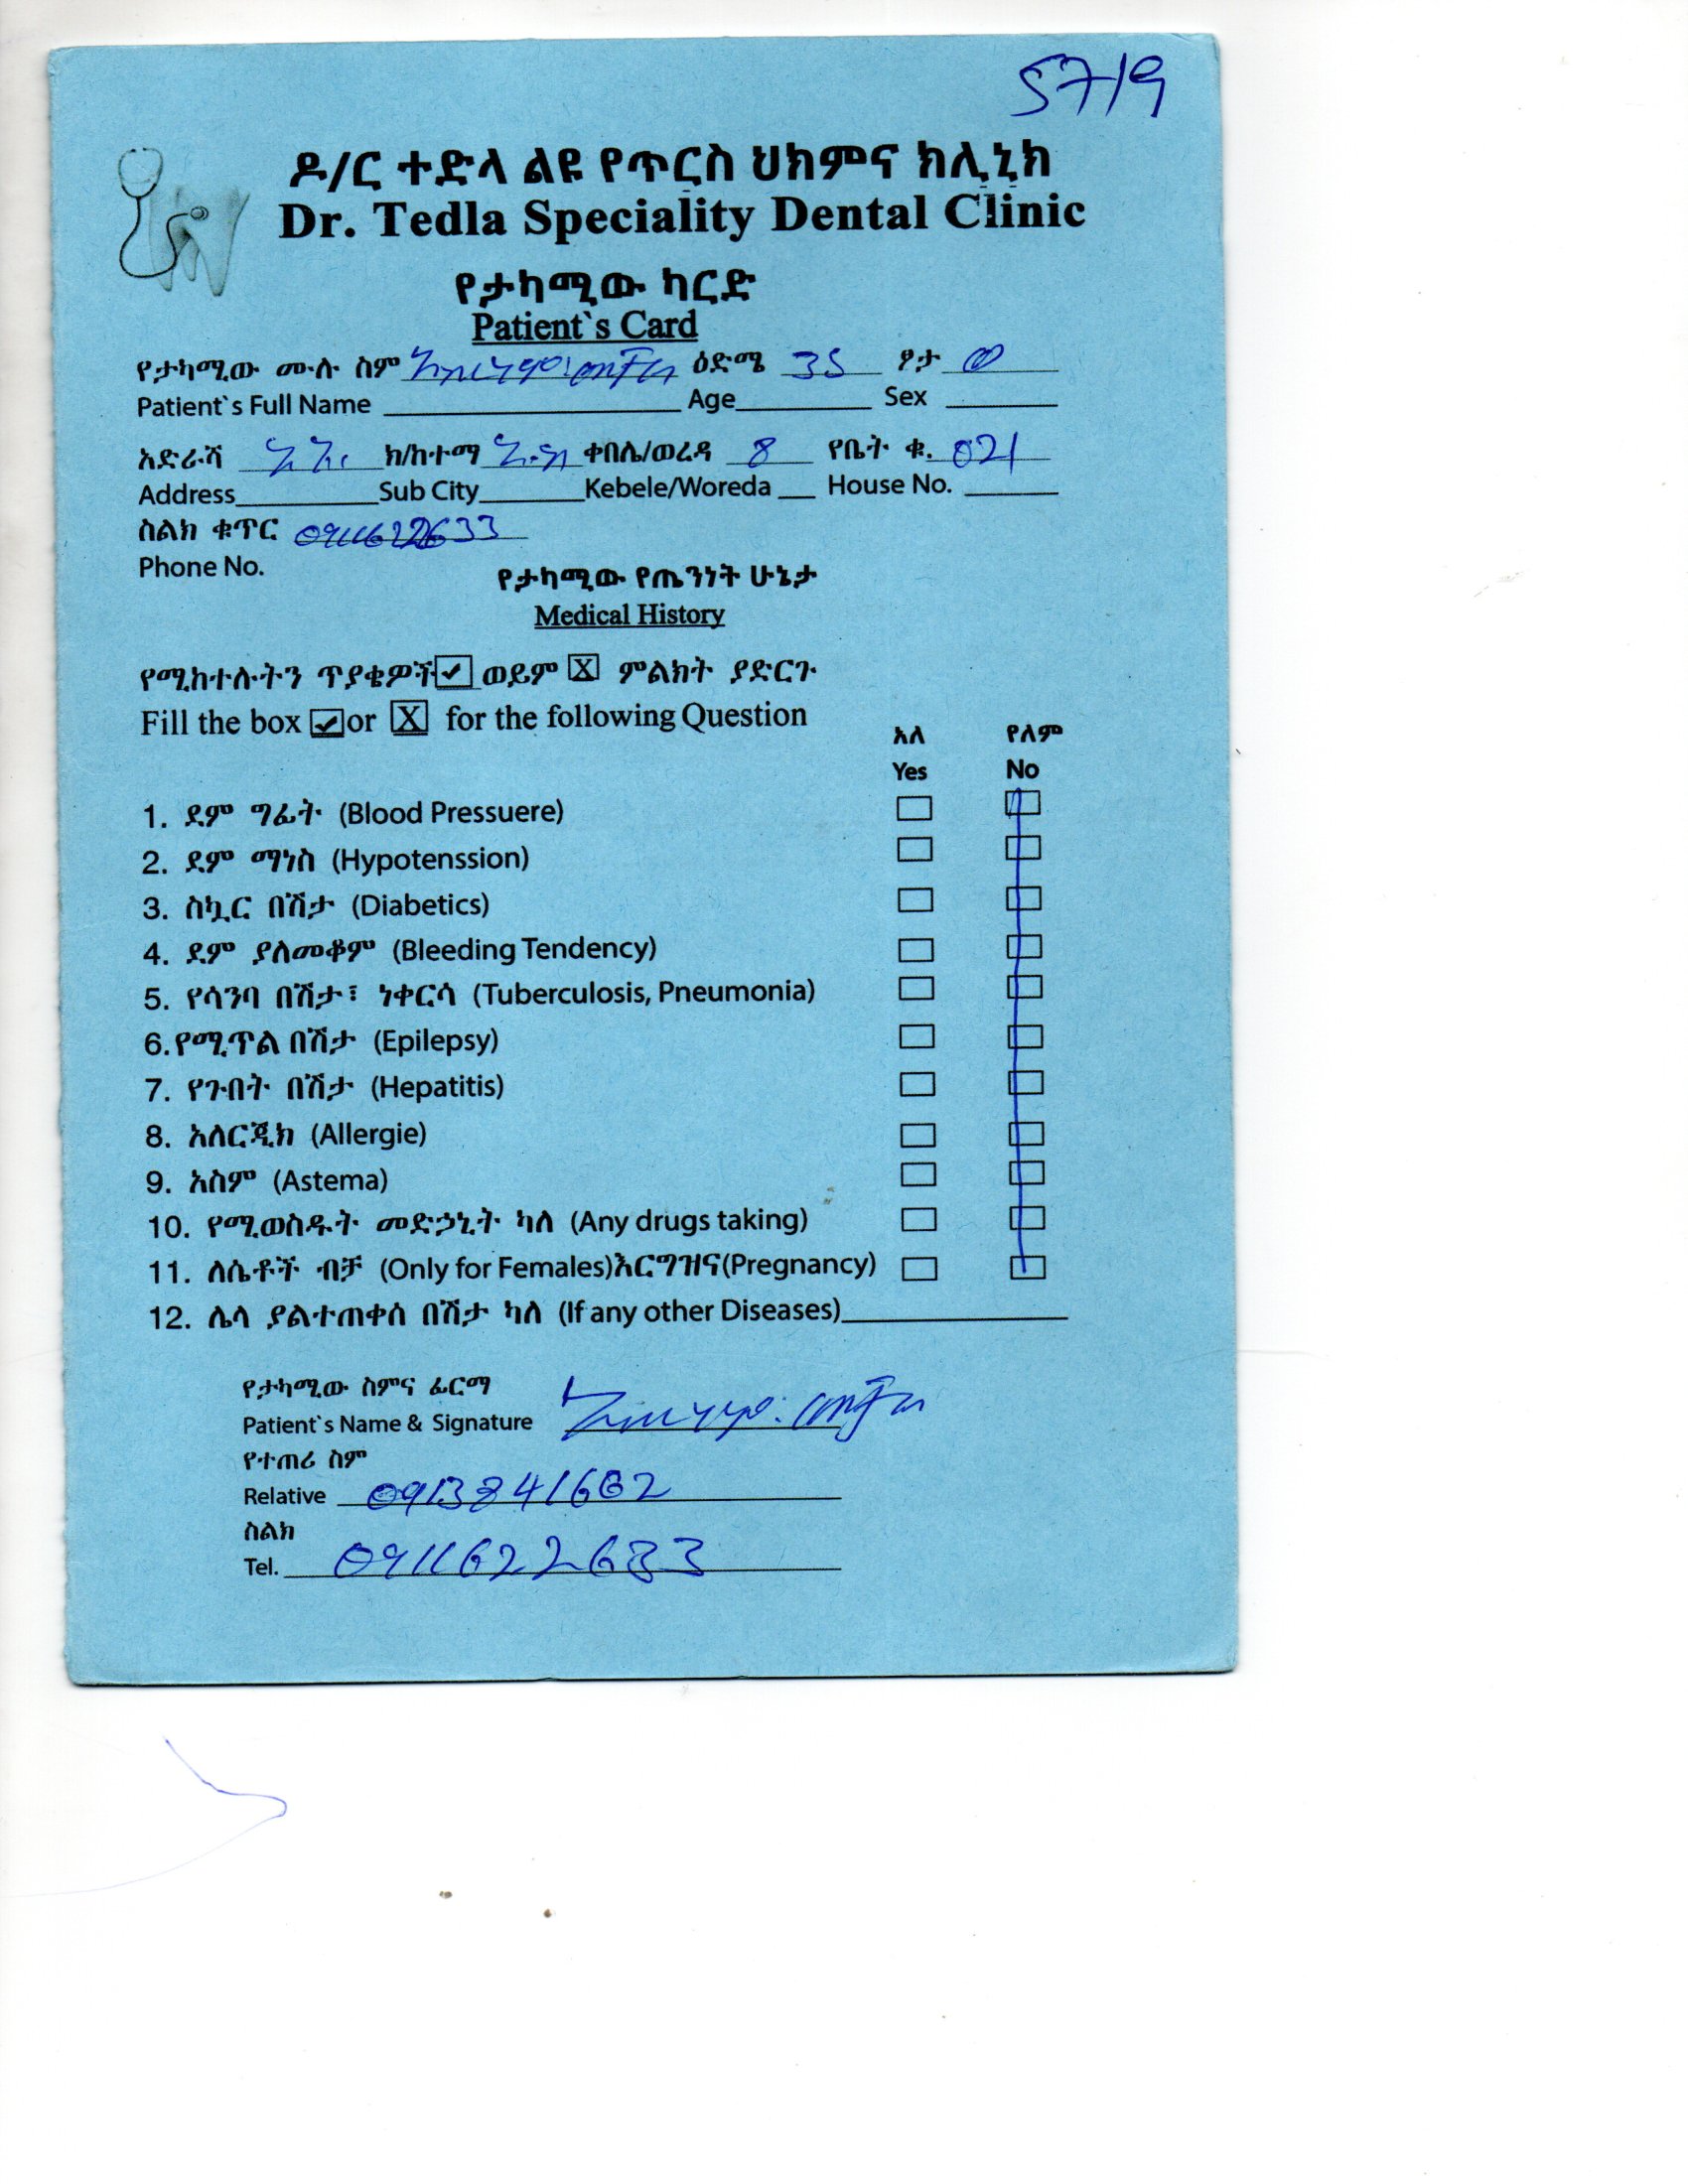 5719
ዶ/ር ተድላ ልዩ የጥርስ ህክምና ክሊኒክ
Dr. Tedla Speciality Dental Clinic
የታካሚው ካርድ
Patient`s Card
የታካሚው ሙሉ ስም ዕድሜ 35 ፆታ ወ
Patient`s Full Name Age Sex
አድራሻ አ.አ. ክ/ከተማ ቀበሌ/ወረዳ 8 የቤት ቁ. 021
Address Sub City Kebele/Woreda House No.
ስልክ ቁጥር 0911622633
Phone No.
የታካሚው የጤንነት ሁኔታ
Medical History
የሚከተሉትን ጥያቄዎች ✓ ወይም X ምልክት ያድርጉ
Fill the box ✓ or X for the following Question
አለ የለም
Yes No
1. ደም ግፊት (Blood Pressuere)
2. ደም ማነስ (Hypotenssion)
3. ስኳር በሽታ (Diabetics)
4. ደም ያለመቆም (Bleeding Tendency)
5. የሳንባ በሽታ፣ ነቀርሳ (Tuberculosis, Pneumonia)
6. የሚጥል በሽታ (Epilepsy)
7. የጉበት በሽታ (Hepatitis)
8. አለርጂክ (Allergie)
9. አስም (Astema)
10. የሚወስዱት መድኃኒት ካለ (Any drugs taking)
11. ለሴቶች ብቻ (Only for Females)እርግዝና(Pregnancy)
12. ሌላ ያልተጠቀሰ በሽታ ካለ (If any other Diseases)
የታካሚው ስምና ፊርማ
Patient`s Name & Signature
የተጠሪ ስም
Relative
ስልክ
Tel. 0911622633